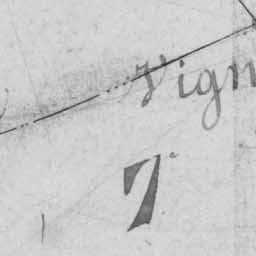 Vign
7